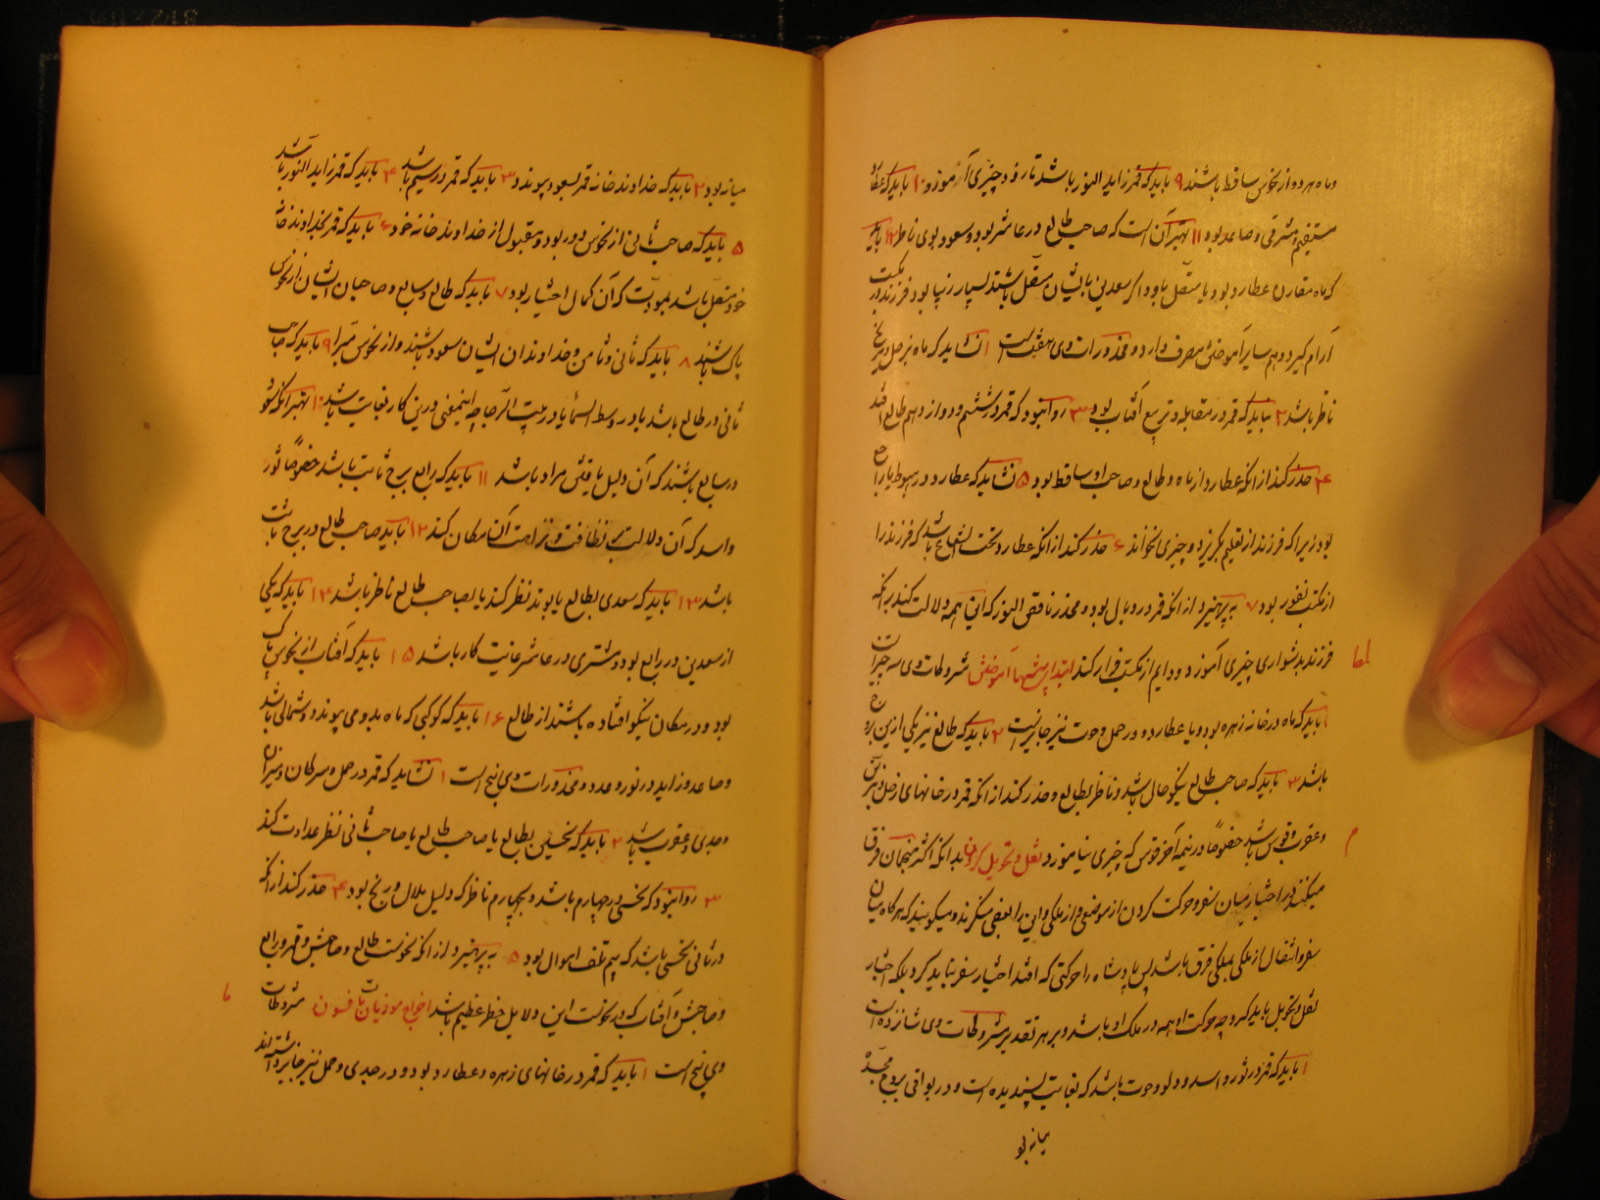 و ماه هر دو از نحوس ساقط باشند ۹ باید که قمر زاید النور باشد تا زود چیزی آموزد ۱۰ باید که عطارد
مستقیم و مشرقی و صاعد بود ۱۱ بهتر آن است که صاحب طالع در عاشر بود و سعود بوی ناظر ۱۲ باید
که ماه مقارن عطارد بود و یا متصل باو و اگر سعدین باایشان متصل باشند بسیار زیبا بود فرزند در مکتب
آرام گیرد و هم سایر آموختن مصرف دارد و محذورات وی هفت است ۱ نشاید که ماه بزحل و مریخ
ناظر باشد ۲ نباید که قمر در مقابله و تربیع آفتاب بود ۳ روا نبود که قمر در ششم و دوازدهم طالع افتد
۴ حذر کند از آنکه عطارد از ماه و طالع و صاحب او ساقط بود ۵ نشاید که عطارد در هبوط یا راجع
بود زیرا که فرزند از تعلیم بگریزد و چیزی نخواند ۶ حذر کند از آنکه عطارد تحت الشعاع باشد که فرزند را
از مکتب نفور بود ۷ بپرهیزد از آنکه قمر در وبال بود و محذر ناقص النور که این همه دلالت کند برآنکه
فرزند بدشواری چیزی آموزد و دایم از مکتب فرار کند ابتدای پیشها آموختن مشروطات وی سه چیز است
۱ باید که ماه در خانه زهره بود و یا عطارد و در حمل و حوت نیز جایز نیست ۲ باید که طالع نیز یکی ازین بروج
باشد ۳ باید که صاحب طالع نیکو حال باشد و ناظر بطالع و حذر کند از آنکه قمر در خانهای زحل و بر
و عقرب و قوس باشد خصوصاً در نیمه آخر قوس که چیزی نیاموزد نقل و تحویل کردن بدانکه اکثر منجمان فرق
میکنند در اختیار میان سفر و حرکت کردن از موضعی و از ملکی و این را بعضی منکرند و میگویند که هرگاه میان
سفر و انتقال از ملکی بملکی فرق باشد پس پادشاه را حرکتی که افتد اختیار سفر نباید کرد بلکه اختیار
نقل و تحویل باید کرد چه حرکت او همه در ملک او باشد و بر هر تقدیر مشروطات وی شانزده است
۱ باید که قمر در ثور و اسد و دلو و حوت باشد که بغایت پسندیده است و در بواقی بروج مجسده
میانه بو
میانه بود ۲ باید که خداوند خانه قمر بسعود پیوندد ۳ باید که قمر در سیم باشد ۴ باید که قمر زاید النور باشد
۵ باید که صاحب ثانی از نحوس دور بود و مقبول از خداوند خانه خود ۶ باید که قمر بخداوند خانه
خود متصل باشد بمودت که آن کمال اختیار بود ۷ باید که طالع و سابع و صاحبان ایشان از نحوس
پاک باشند ۸ باید که ثانی و ثامن و خداوندان ایشان سعود باشند و از نحوس مبرا ۹ باید که صاحب
ثانی در طالع باشد یا در وسط السما یا در بیت الرجا چه اینمعنی درین کار بغایت باشد ۱۰ بهتر آنکه سعود
در سابع باشند که آن دلیل یافتن مراد باشد ۱۱ باید که رابع برج ثابت باشد خصوصاً ثور
و اسد که آن دلالت بر نظافت و نزاهت آن مکان کند ۱۲ باید صاحب طالع در برج ثابت
باشد ۱۳ باید که سعدی بطالع یا بوتد نظر کند یا بصاحب طالع ناظر باشد ۱۴ باید که یکی
از سعدین در رابع بود و مشتری در عاشر غایت کار باشد ۱۵ باید که آفتاب از نحوس پاک
بود و در مکان نیکو افتاده باشند از طالع ۱۶ باید که کوکبی که ماه بدو می پیوندد شمالی باشد
و صاعد و زاید در نور و عدد و محذورات وی پنج است ۱ نشاید که قمر در حمل و سرطان و میزان
و جدی و عقرب باشد ۲ باید که نحسین بطالع یا صاحب طالع یا صاحب ثانی نظر عداوت کند
۳ روا نبود که نحسی در چهارم باشد و بچهارم ناظر که دلیل ملال و رنج بود ۴ حذر کند از آنکه
در ثانی نحسی باشد که بیم تلف اموال بود ۵ بپرهیزد از آنکه نحوست طالع و صاحبش و قمر و رابع
و صاحبش و آفتاب که در نحوست این دلایل خطر عظیم باشد اخراج موذیات بافسون مشروطات
وی پنج است ۱ باید که قمر در خانهای زهره و عطارد بود و در جدی و حمل نیز جایز داشته اند